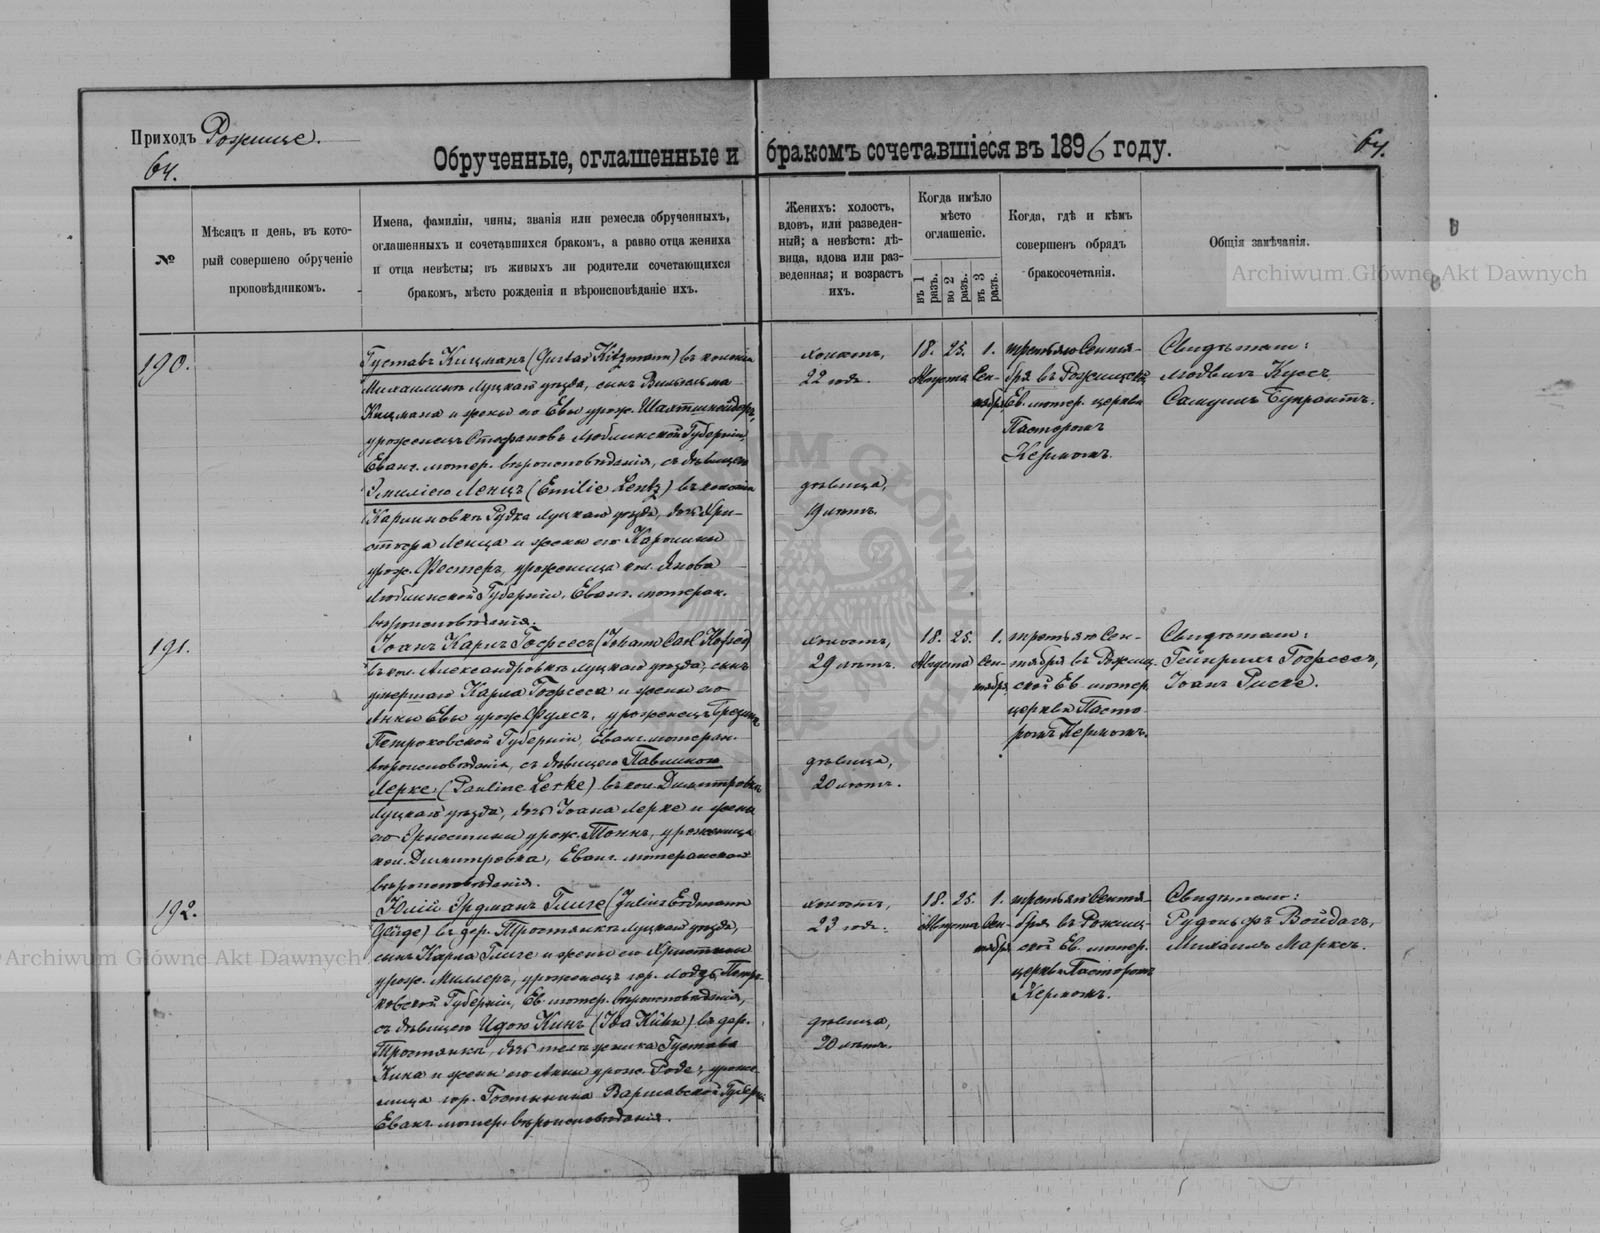 Приходъ Рожище.
64.
Обрученные, оглашенные и бракомъ сочетавшіеся въ 1896 году.
64.
№
Мѣсяцъ и день, въ кото-
рый совершено обрученіе
проповѣдникомъ.
Имена, фамиліи, чины, званія или ремесла обрученныхъ,
оглашенныхъ и сочетавшихся бракомъ, а равно отца жениха
и отца невѣсты; въ живыхъ ли родители сочетающихся
бракомъ, мѣсто рожденія и вѣроисповѣданіе ихъ.
Женихъ: холостъ,
вдовъ, или разведен-
ный; а невѣста: дѣ-
вица, вдова или раз-
веденная; и возрастъ
ихъ.
Когда имѣло
мѣсто
оглашеніе.
въ 1 разъ.
во 2 разъ.
въ 3 разъ.
Когда, гдѣ и кѣмъ
совершенъ обрядъ
бракосочетанія.
Общія замѣчанія.
190.
Густавъ Кицманъ (Gustav Kitzmann) въ колоніи
Михаилинѣ Луцкаго уѣзда, сынъ Вильгельма
Кицмана и жены его Евы урож.
уроженецъ Стефановъ Люблинской Губерніи,
Еванг. лютер. вѣроисповѣданія, съ дѣвицею
Эмиліею Ленцъ (Emilie Lentz) въ колоніи
Рудка Луцкаго уѣзда, дочь Хри-
стофа Ленца и жены его Каролины
урож. Фестеръ, уроженица кол. Янова
Люблинской Губерніи, Еванг. лютеран.
вѣроисповѣданія.
холостъ,
22 годъ.
дѣвица,
19 лѣтъ.
18. 25. 1.
Августа Сен-
тября
третьяго Сентя-
бря въ Рожищской
Ев. лютер. церкви
Пасторомъ
Кермомъ.
Свидѣтели:
Людвигъ Кусъ,
Самуилъ
191.
Іоганъ Карлъ Гофсесъ (Johann Carl Hofses)
въ кол. Александровкѣ Луцкаго уѣзда, сынъ
умершаго Карла Гофсеса и жены его
Анны Евы урож. Фуксъ, уроженецъ
Петроковской Губерніи, Еванг. лютеран.
вѣроисповѣданія, съ дѣвицею Павлиною
Лерке (Pauline Lerke) въ кол. Димитровкѣ
Луцкаго уѣзда, дочь Іоана Лерке и жены
его Эрнестины урож. Тоннъ, уроженица
кол. Димитровка, Еванг. лютеранскаго
вѣроисповѣданія.
холостъ,
29 лѣтъ.
дѣвица,
20 лѣтъ.
18. 25. 1.
Августа Сен-
тября
третьяго Сен-
тября въ Рожищ-
ской Ев. лютер.
церкви Пасто-
ромъ Кермомъ.
Свидѣтели:
Гейнрихъ Гофсесъ,
Іоанъ Риске.
192.
Юлій Эрдманъ Глиге (Julius Erdmann
въ дер. Тростянкѣ Луцкаго уѣзда,
сынъ Карла Глиге и жены его Христины
урож. Миллеръ, уроженецъ гор. Лодзь Петро-
ковской Губерніи, Ев. лютер. вѣроисповѣданія,
съ дѣвицею Идою Кинъ (Ida Kühn) въ дер.
Тростянкѣ, дочь Густава
Кина и жены его Анны урож. Роде, уроже-
ница гор. Гостынина Варшавской Губерніи
Еванг. лютер. вѣроисповѣданія.
холостъ,
23 годъ.
дѣвица,
20 лѣтъ.
18. 25. 1.
Августа Сен-
тября
третьяго Сентя-
бря въ Рожищ-
ской Ев. лютер.
церкви Пасторомъ
Кермомъ.
Свидѣтели:
Рудольфъ Войдагъ,
Михаилъ Марксъ.
Archiwum Główne Akt Dawnych
Archiwum Główne Akt Dawnych